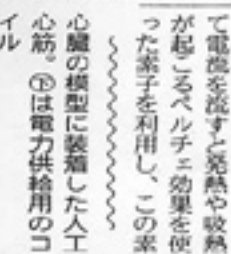 て電流を流すと発熱や吸熱
が起こるペルチェ効果を使
った素子を利用し、この素
心臓の模型に装着した人工
心筋。㊦は電力供給用のコ
イル